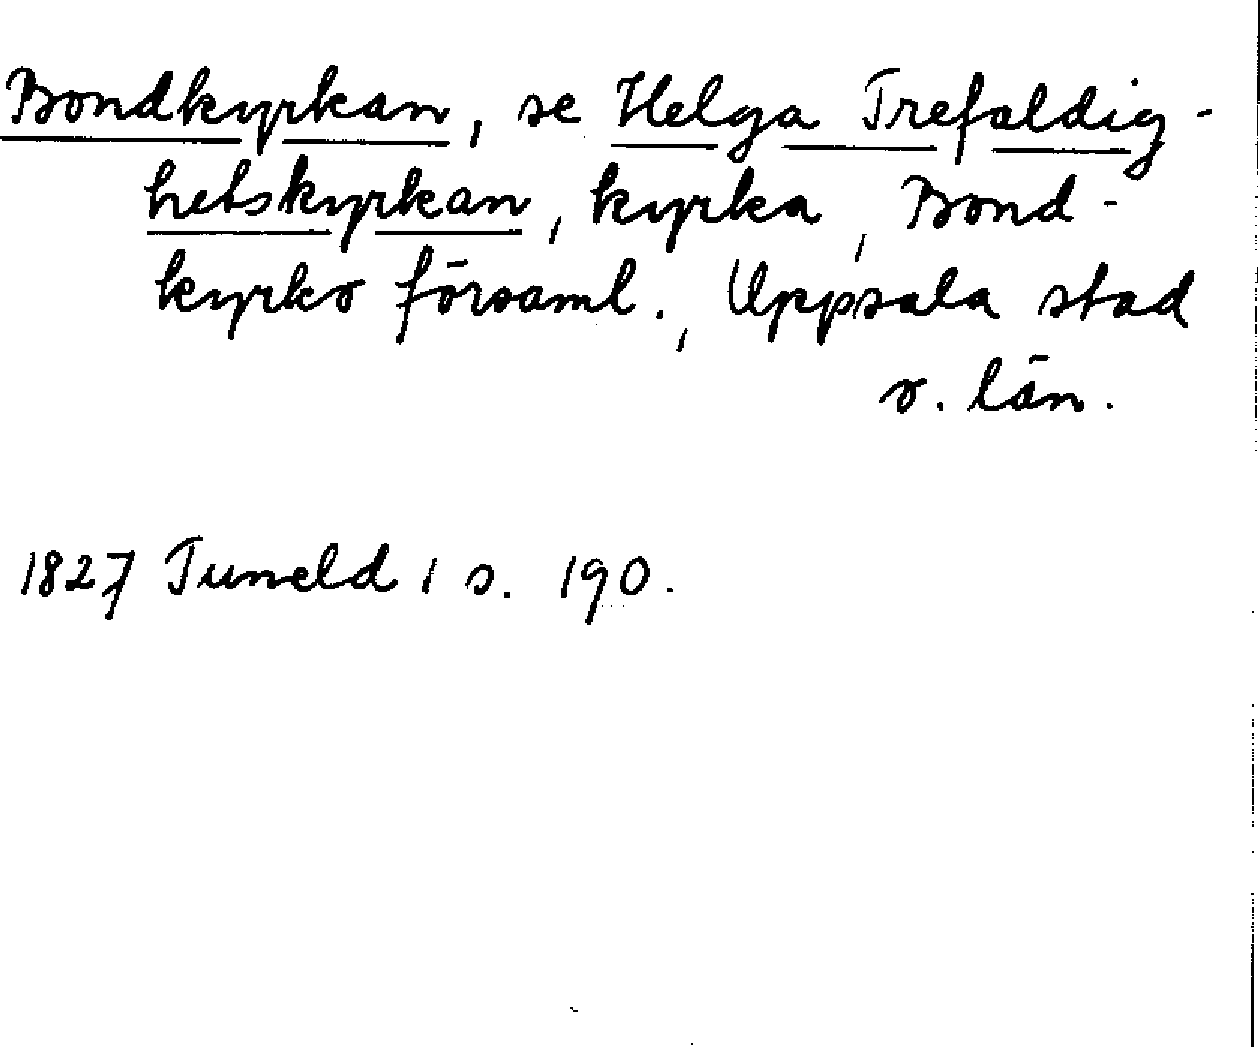 Bondkyrkan, se Helga Trefaldig-
hetskyrkan, kyrka, Bond-
kyrko församl., Uppsala stad
o. län.
1827 Tuneld 1 s. 190.